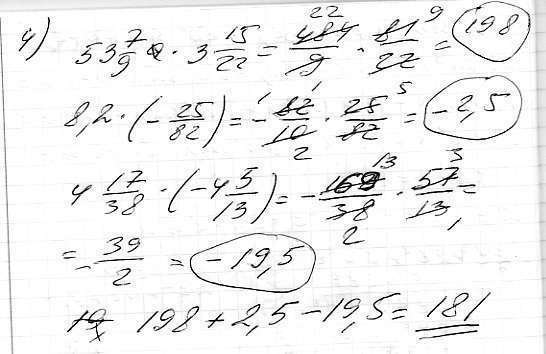 4) 53 7/9 · 3 15/22 = 484/9 · 81/22 = 198
8,2 · (- 25/82) = - 82/10 · 25/82 = -2,5
4 17/38 · (-4 5/13) = - 169/38 · 57/13 =
= - 39/2 = -19,5
19 198 + 2,5 - 19,5 = 181